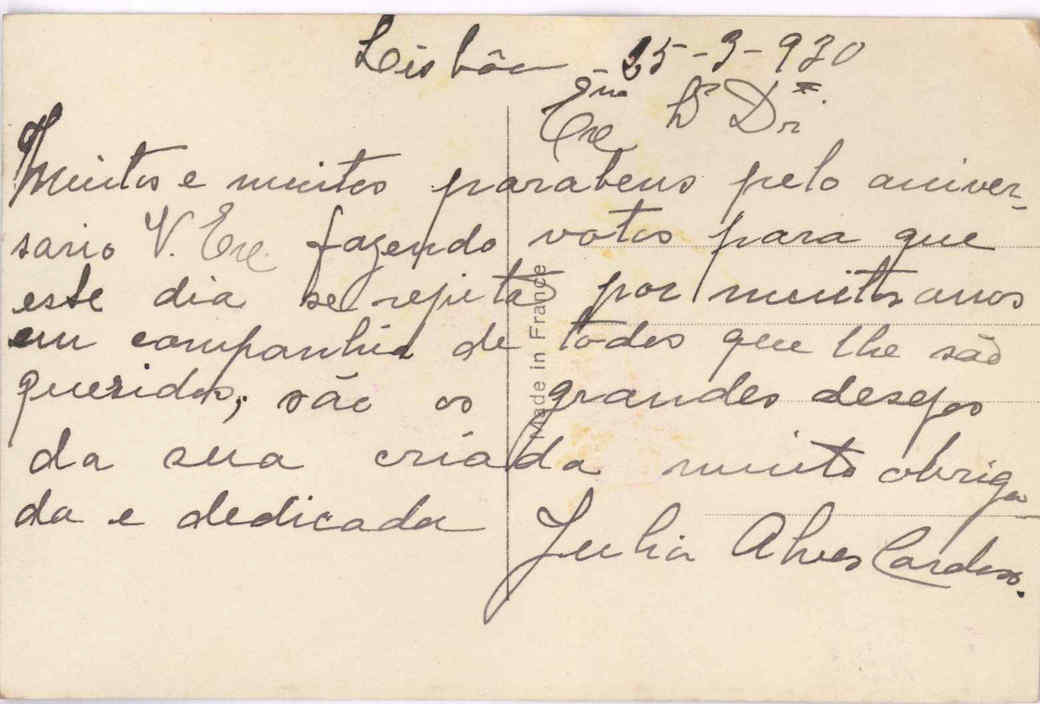 Lisbôa 25-3-930
Exmo Sr Dr.
Muitos e muitos parabens pelo aniver-
sario V. Exe. fazendo votos para que
este dia se repita por muitos anos
em companhia de todos que lhe são
queridos, são os grandes desejos
da sua criada muito obriga
da e dedicada
Julia Alves Cardoso.
Made in France